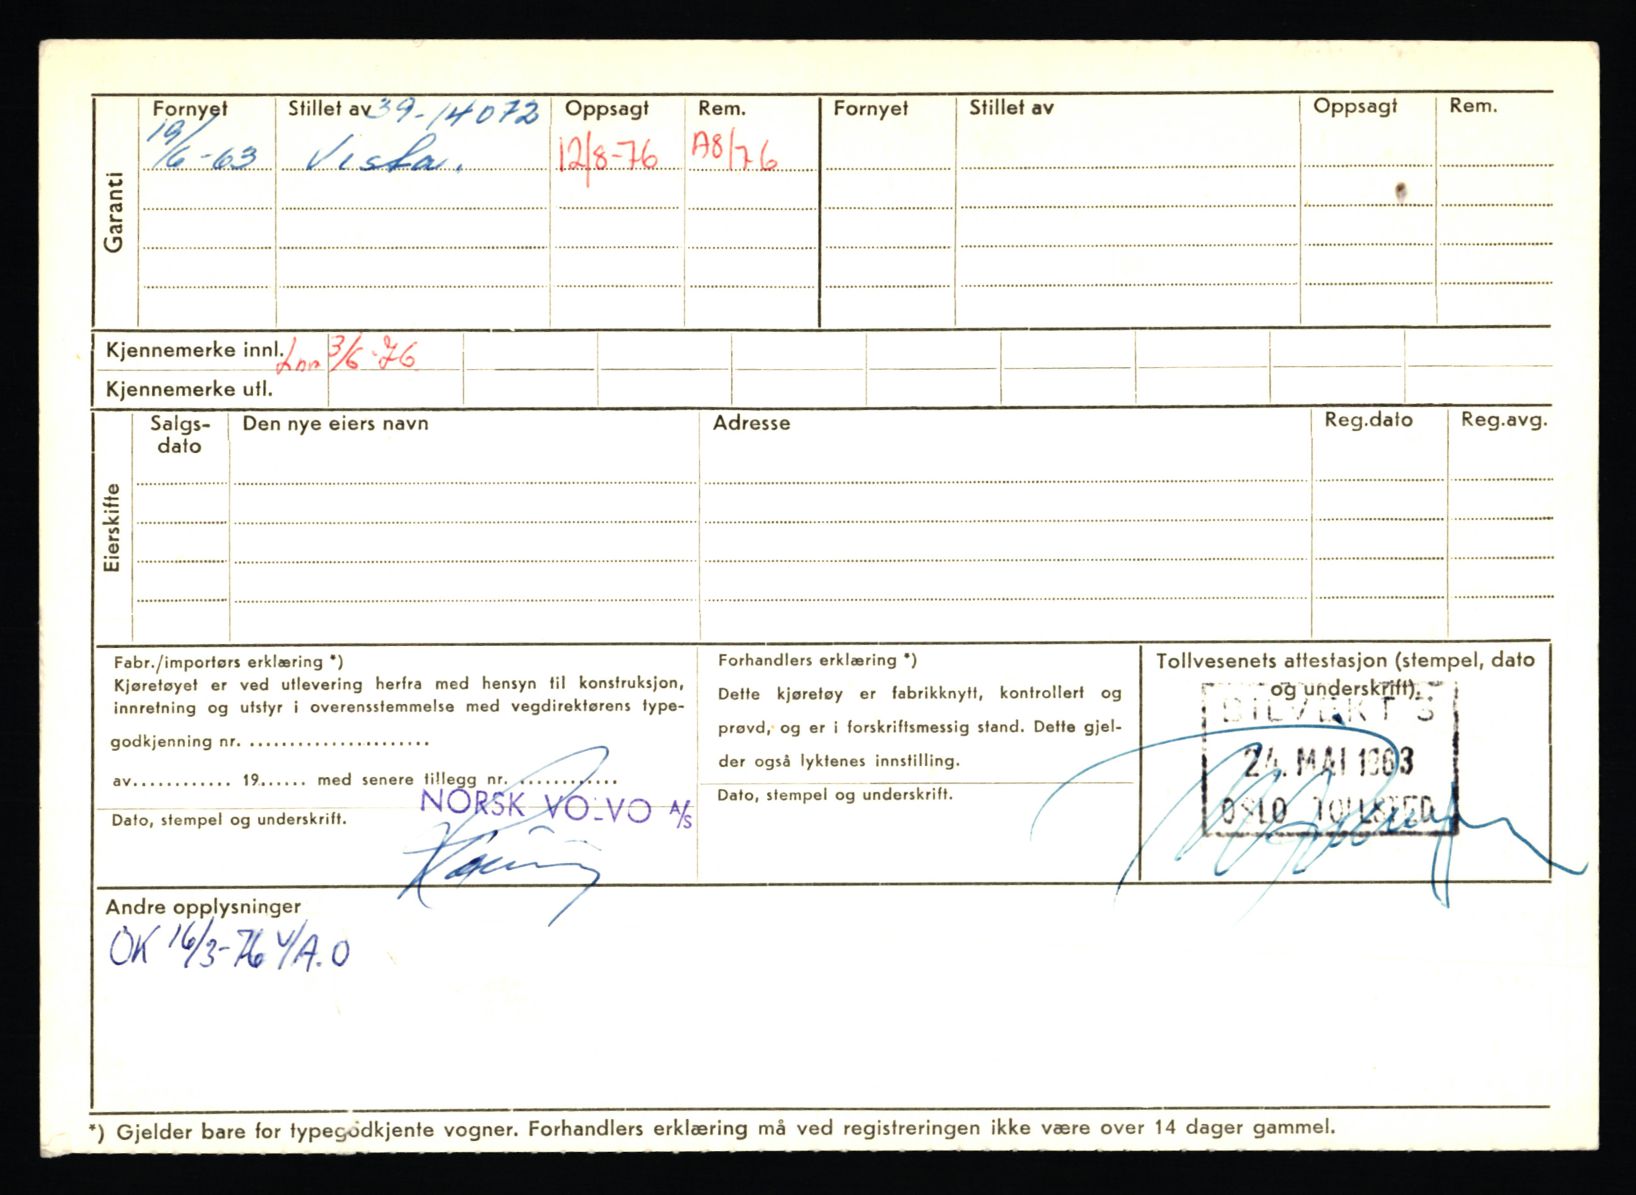 Garanti
Fornyet Stillet av 39-14072 Oppsagt Rem. Fornyet Stillet av Oppsagt Rem.
19/6-63 Vesta. 12/8-76 A8/76
Kjennemerke innl. Inn 3/6-76
Kjennemerke utl.
Eierskifte
Salgs-dato Den nye eiers navn Adresse Reg.dato Reg.avg.
Fabr./importørs erklæring *)
Kjøretøyet er ved utlevering herfra med hensyn til konstruksjon,
innretning og utstyr i overensstemmelse med vegdirektørens type-
godkjenning nr. ......................
av............ 19...... med senere tillegg nr. ............
NORSK VOLVO A/S
Dato, stempel og underskrift.
Forhandlers erklæring *)
Dette kjøretøy er fabrikknytt, kontrollert og
prøvd, og er i forskriftsmessig stand. Dette gjel-
der også lyktenes innstilling.
Dato, stempel og underskrift.
Tollvesenets attestasjon (stempel, dato
og underskrift).
24. MAI 1963
OSLO TOLLSTED
Andre opplysninger
OK 16/3-76 V/A.O
*) Gjelder bare for typegodkjente vogner. Forhandlers erklæring må ved registreringen ikke være over 14 dager gammel.